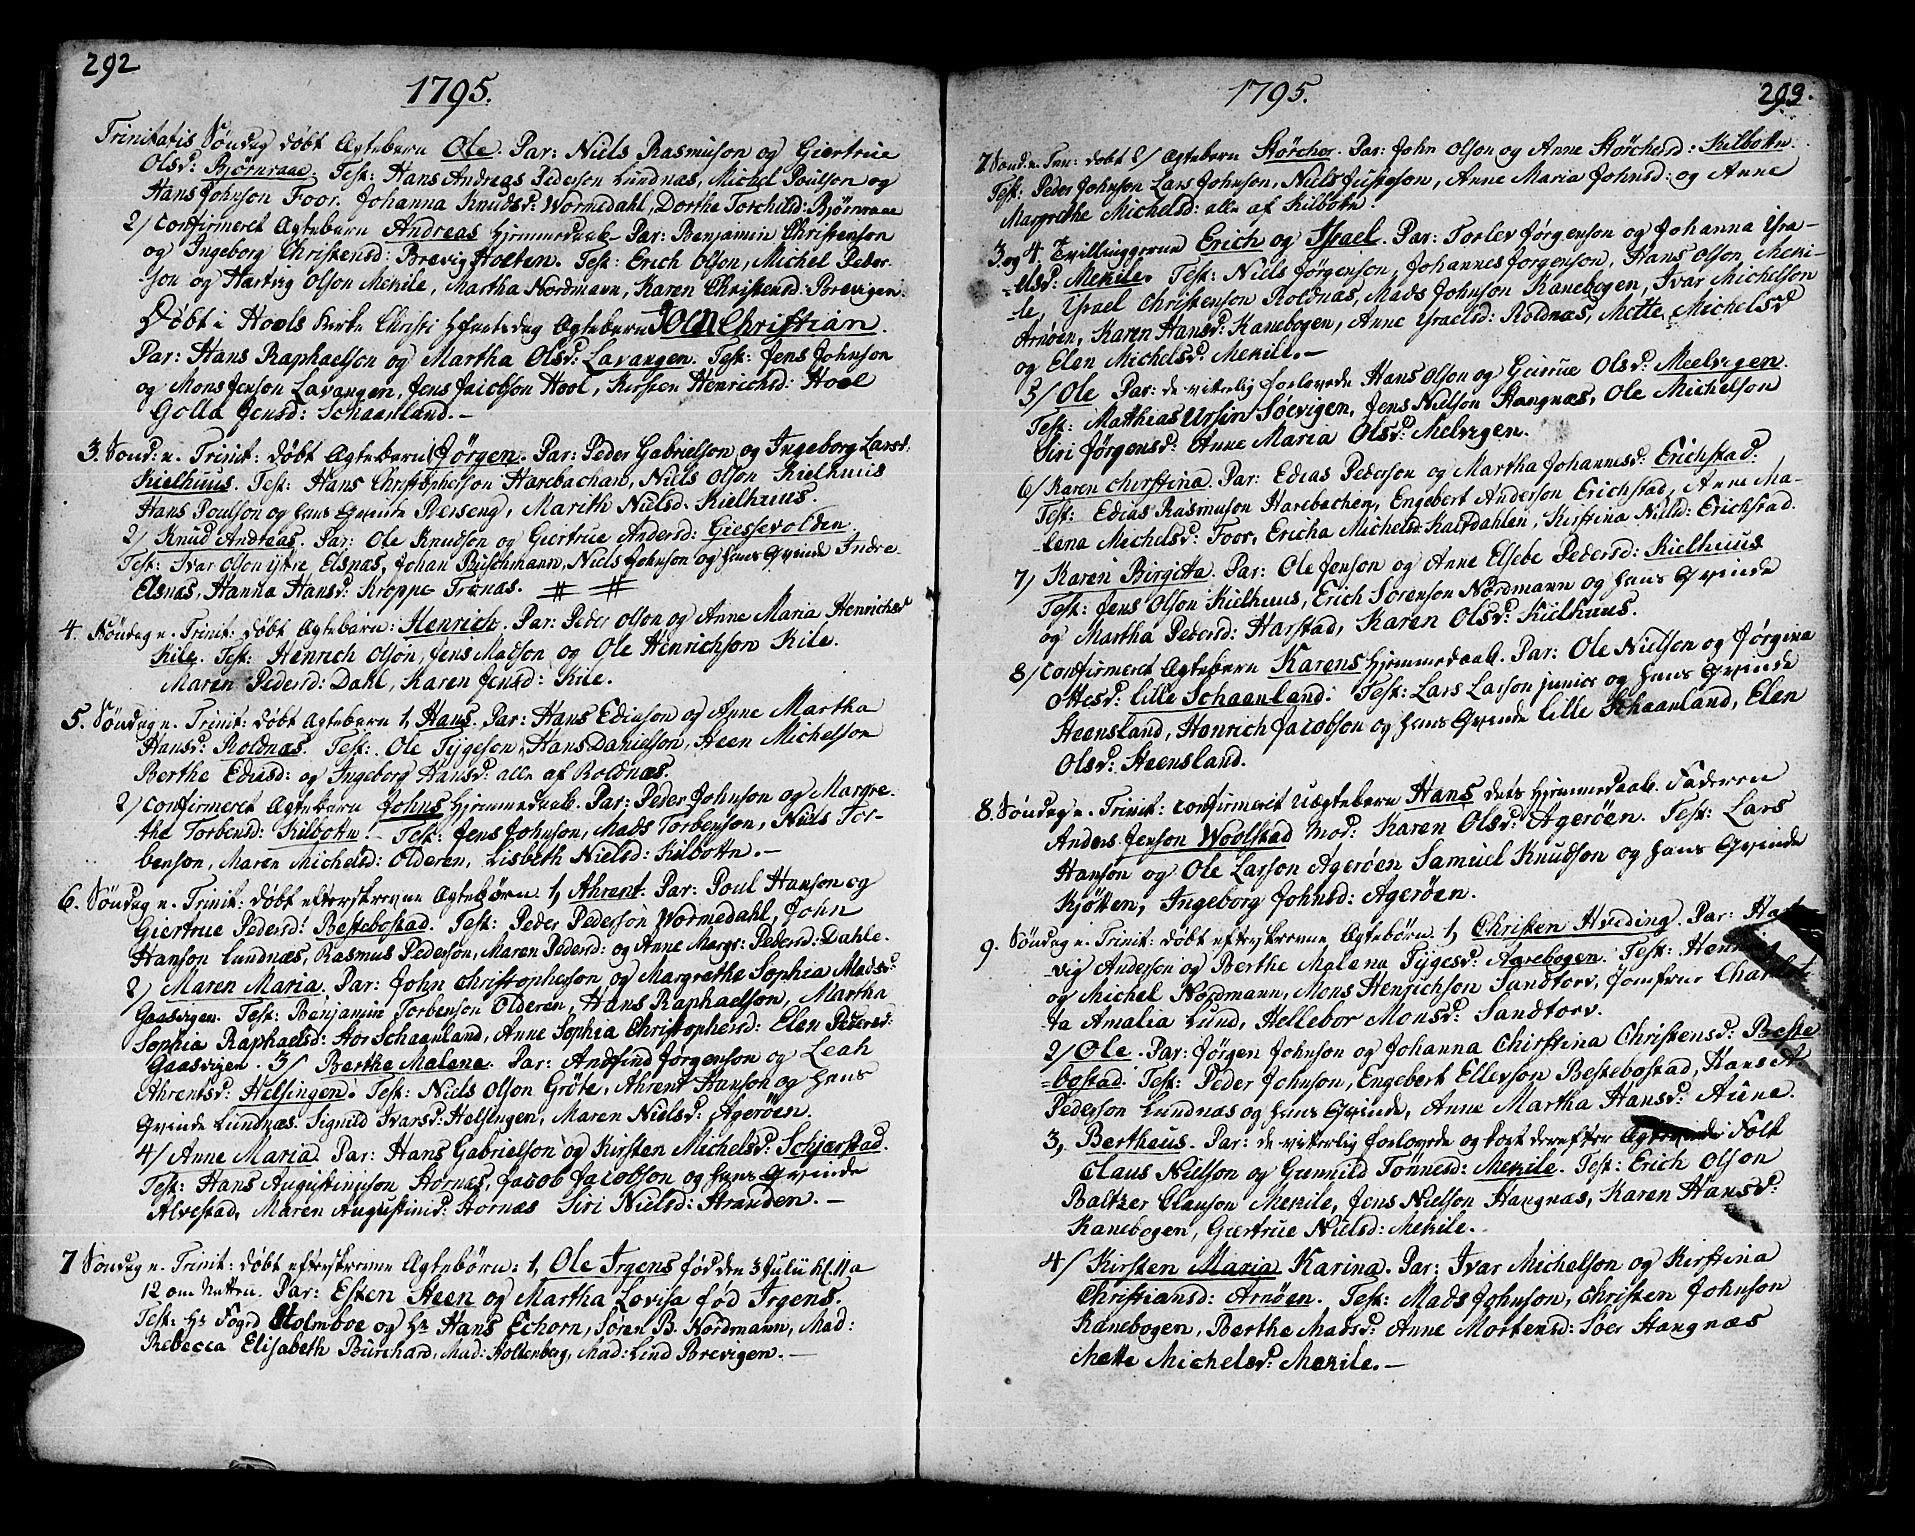 292
1795.
Trinitatis Søndag døbt Ægtebarn Ole. Par: Niels Rasmuson og Giertrue
Olsd: Bjørnraae. Test: Hans Andreas Pederson Lundnæs, Michel Poulson og
Hans Johnson Foor. Johanna Knudsd: Wormedahl, Dorthe Torchild: Bjørnraae
2/ Confirmeret Ægtebarn Andreas Hjemmedaab Par: Benjamin Christenson
og Ingeborg Christensd: Brevig Holten. Test: Erich Olson, Michel Peder-
son og Hartvig Olson Mekile, Martha Nordmann, Karen Christensd: Brevigen.
Døbt i Hools Kirke Christi Hfartsdag Ægtebarn John Christian.
Par: Hans Raphaelson og Martha Olsd: Lavangen. Test: Jens Johnson
og Mons Jenson Lavangen, Jens Jacobson Hool, Kirsten Henrichsd: Hool
Golla Jensd: Schaanland.-
3. Sønd: e. Trinit: døbt Ægtebarn Jørgen. Par: Peder Gabrielson og Ingeborg Larsd:
Kielhuus. Test: Hans Christopherson Harebachen, Niels Olson Kielhuus
Hans Poulson og hans Qvinde Berseng, Marith Nielsd: Kielhuus.
2/ Knud Andreas. Par: Ole Knudson og Giertrue Andersd: Giessevolden.
Test: Ivar Olson ijtre Elsnæs, Johan Buschmann, Niels Johnson og hans Qvinde Indre
Elsnæs, Hanna Hansd: Kroppe Trenæs. # #
4. Søndag e. Trinit: døbt Ægtebarn: Henrich. Par: Peder Olson og Anne Maria Henrichsd
Kile. Test: Henrich Olson, Jens Madson og Ole Henrichson Kile.
Maren Pedersd: Dahl, Karen Jensd: Kile.
5. Søndag e. Trinit: døbt Ægtebarn 1, Hans. Par: Hans Ediuson og Anne Martha
Hansd: Roldnæs. Test: Ole Tijgeson, Hans Danielson, Heen Michelson
Berthe Ediesd: og Ingeborg Hansd: alle af Roldnæs.
2/ Confirmeret Ægtebarn Johns Hjemmedaab. Par: Peder Johnson og Margre-
the Torbensd: Kilbotn. - Test: Jens Johnson, Mads Torbenson, Niels Tor-
benson, Maren Michelsd: Olderen, Lisbeth Nielsd: Kilbottn.-
6. Søndag e. Trinit: døbt efterskrevne Ægtebørn. 1, Ahrent. Par: Poul Hanson og
Giertrue Pedersd: Bestebostad. Test: Peder Pederson Wormedahl, John
Hanson Lundnæs, Rasmus Pederson, Maren Pedersd: og Anne Margr: Pedersd: Dahle.
2/ Maren Maria. Par: John Christopherson og Margrethe Sophia Madsd:
Gaasvigen. Test: Benjamin Torbenson Olderen, Hans Raphaelson, Martha
Sophia Raphaelsd: Stor Schaanland, Anne Sophia Christophersd: Elen Pedersd:
Gaasvigen. 3/ Berthe Malene. Par: Andfind Jørgenson og Leah
Ahrentsd: Helsingen. Test: Niels Olson Gröte, Ahrent Hanson og hans
Qvinde Lundnæs. Signild Ivarsd: Helsingen, Maren Nielsd: Agerøen.
4/ Anne Maria. Par: Hans Gabrielson og Kirsten Michelsd: Schjarstad.
Test: Hans Augustinuson Hornæs, Jacob Jacobson og hans Qvinde
Alvestad, Maren Augustinid: Hornæs Siri Nielsd: Stranden.-
7 Søndag e. Trinit: døbt efterskrevne Ægtebørn: 1, Ole Irgens fød den 3 Julii Kl. 11 a
12 om Natten. Par: Esten Steen og Martha Lovisa fød Irgens.
Test: Hr Fogd Holmboe og Hr Hans Echorn, Søren B. Nordmann, Mad:
Rebecca Elisabeth Burchard, Mad: Holtenberg, Mad: Lind Brevigen.-
1795.
293.
7 Sønd: e. Trin: døbt 2/ Ægtebarn Størcher. Par: John Olson og Anne Størchersd: Kilbottn.
Test: Peder Johnson Lars Johnson, Niels Justeson, Anne Maria Johnsd: og Anne
Margrethe Michelsd: alle af Kilbotn.
3 og 4. Tvillingerne Erich og Israel. Par: Torlev Jørgenson og Johanna Isra-
elsd: Mekile. Test: Niels Jørgenson, Johannes Jørgenson, Hans Olson, Meki-
le, Israel Christenson Roldnæs, Mads Johnson Kanebogen, Ivar Michelson
Arnøen, Karen Hansd: Kanebogen, Anne Israelsd: Roldnæs, Mette Michelsd
og Elen Michelsd: Mekile.-
5/ Ole Par: de vitterlig forlovede Hans Olson og Geirue Olsd: Meelvigen.
Test: Matthias Ursin Søevigen, Jens Nielson Stangnæs, Ole Michelson
Siri Jørgensd: Anne Maria Olsd: Melvigen.
6/ Karen Chirstina. Par: Edias Pederson og Martha Johannesd: Erichstad.
Test: Edias Rasmuson Harebachen, Engebert Anderson Erichstad, Anne Ma-
lena Michelsd: Foor, Ericha Michelsd: Kastdahlen, Kirstina Nield: Erichstad.
7/ Karen Birgitta. Par: Ole Jenson og Anne Elsebe Pedersd: Kielhuus
Test: Jens Olson Kielhuus, Erich Sørenson Nordmann og hans Qvinde
og Martha Pedersd: Harstad, Karen Olsd: Kielhuus.
8/ Confirmeret Ægtebarn Karens Hjemmedaab. Par: Ole Nielson og Jørgina
Ottesd: Lille Schaanland. Test: Lars Larson junior og hans Qvinde
Steensland, Henrich Jacobson og hans Qvinde Lille Schaanland, Elen
Olsd: Steensland.
8. Søndag e. Trinit: Confirmeret Uægtebarn Hans dets Hjemmedaab. Faderen
Anders Jenson Woolstad Mod: Karen Olsd: Agerøen. Test: Lars
Hanson og Ole Larson Agerøen Samuel Knudson og hans Qvinde
Kjøtten, Ingeborg Johnsd: Agerøen.
9. Søndag e. Trinit: døbt efterskrevne Ægtebørn. 1, Christen Hveding. Par: Hart-
vig Anderson og Berthe Malena Tijgesd: Aarebogen. Test: Henrich
og Michel Nordmann, Mons Henrichson Sandtorv, Jomfrue Charlot-
ta Amalia Lund, Hellebor Monsd: Sandtorv.
2/ Ole. Par: Jørgen Johnson og Johanna Chirstina Christensd: Beste
bostad. Test: Peder Johnson, Engebert Ellevson Bestebostad, Hans A
Pederson Lundnæs og hans Qvinde, Anne Martha Hansd: Aune.
3, Bertheus. Par: de vitterlig forlovede og kort derefter Folk
Claus Nielson og Gunnild Tønnesd: Mekile. Test: Erich Olson
Baltzer Clauson Mekile, Jens Nielson Stangnæs, Karen Hansd:
Kanebogen, Giertrue Nielsd: Mekile.
4/ Kirsten Maria Karina. Par: Ivar Michelson og Kirstina
Christiansd: Arnøen. Test: Mads Johnson, Christen Johnson
Kanebogen, Berthe Madsd: Anne Mortensd: Sør Stangnæs
Mette Michelsd: Mekile.-